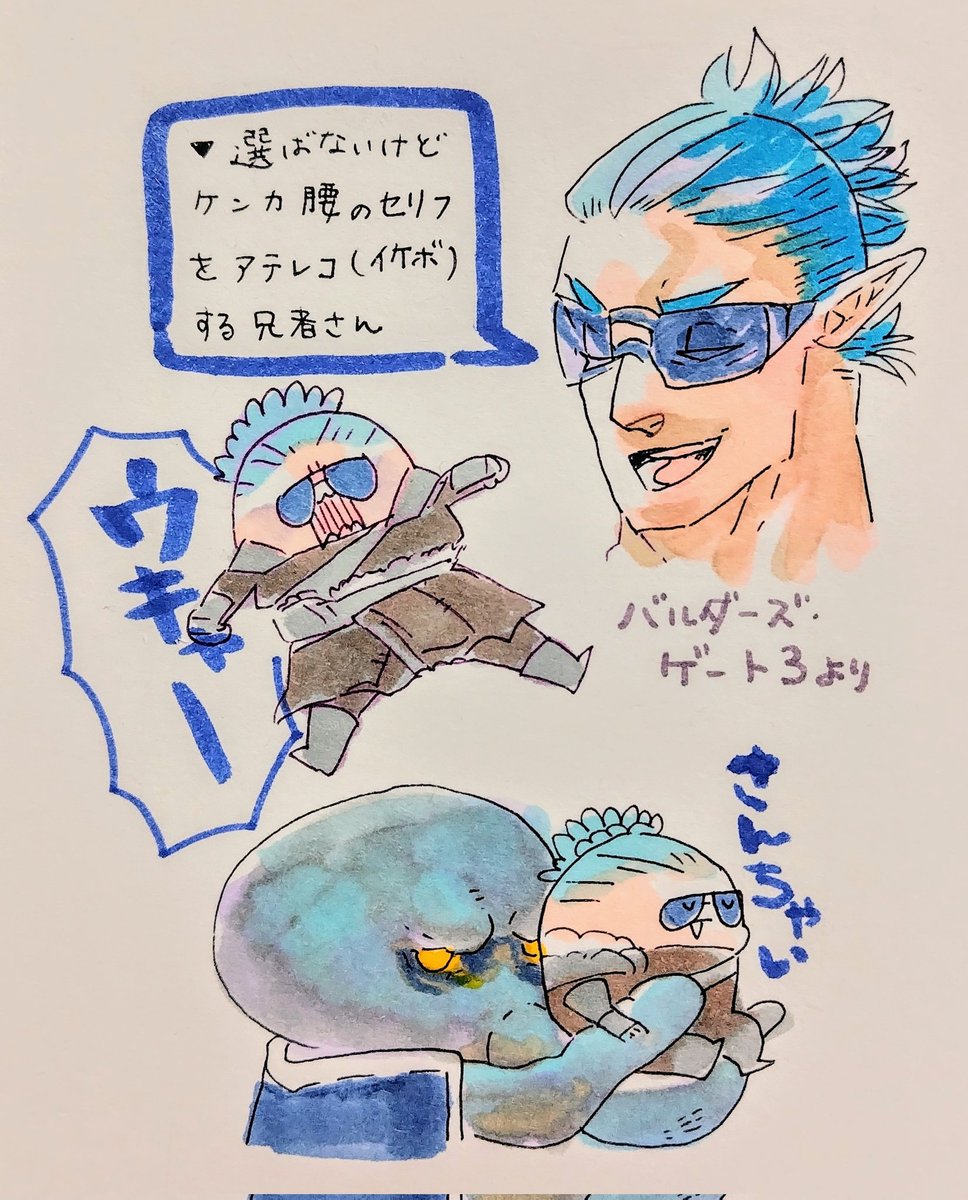 ▼選ばないけど
ケンカ腰のセリフ
をアテレコ(イケボ)
する兄者さん
ウキャー
バルダーズ・
ゲート3より
さんちゃい